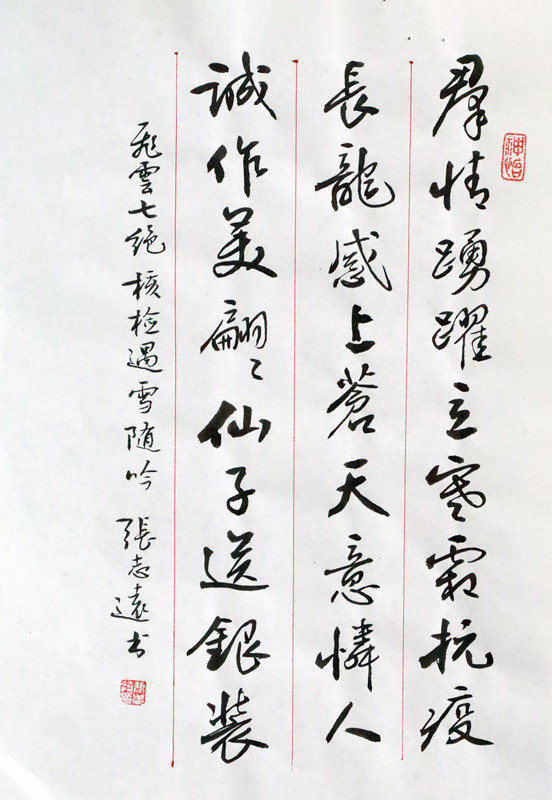 羣情踴躍立寒霜抗疫
長龍感上蒼天意憐人
誠作美翩〻仙子送銀裝
飛雲七绝核检遇雪随吟 張志遠书